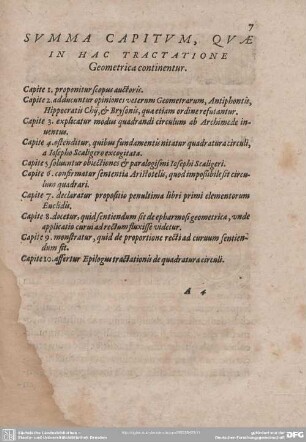 7
SVMMA CAPITVM, QVÆ
IN HAC TRACTATIONE
Geometrica continentur.
Capite 1. proponitur scopus auctoris.
Capite 2. adducuntur opiniones veterum Geometrarum, Antiphontis,
Hippocratis Chij, & Brysonis, quæ etiam ordine refutantur.
Capite 3. explicatur modus quadrandi circulum ab Archimede in-
uentus.
Capite 4. ostenditur, quibus fundamentis nitatur quadratura circuli,
a Iosepho Scaligero excogitata.
Capite 5. soluuntur obiectiones & paralogismi Iosephi Scaligeri.
Capite 6. confirmatur sententia Aristotelis, quod impossibile sit cir-
culum quadrari.
Capite 7. declaratur propositio penultima libri primi elementorum
Euclidis.
Capite 8. docetur, quid sentiendum sit de epharmosi geometrica, vnde
applicatio curui ad rectum fluxisse videtur.
Capite 9. monstratur, quid de proportione recti ad curuum sentien-
dum sit.
Capite 10. affertur Epilogus tractationis de quadratura circuli.
A 4
DFG